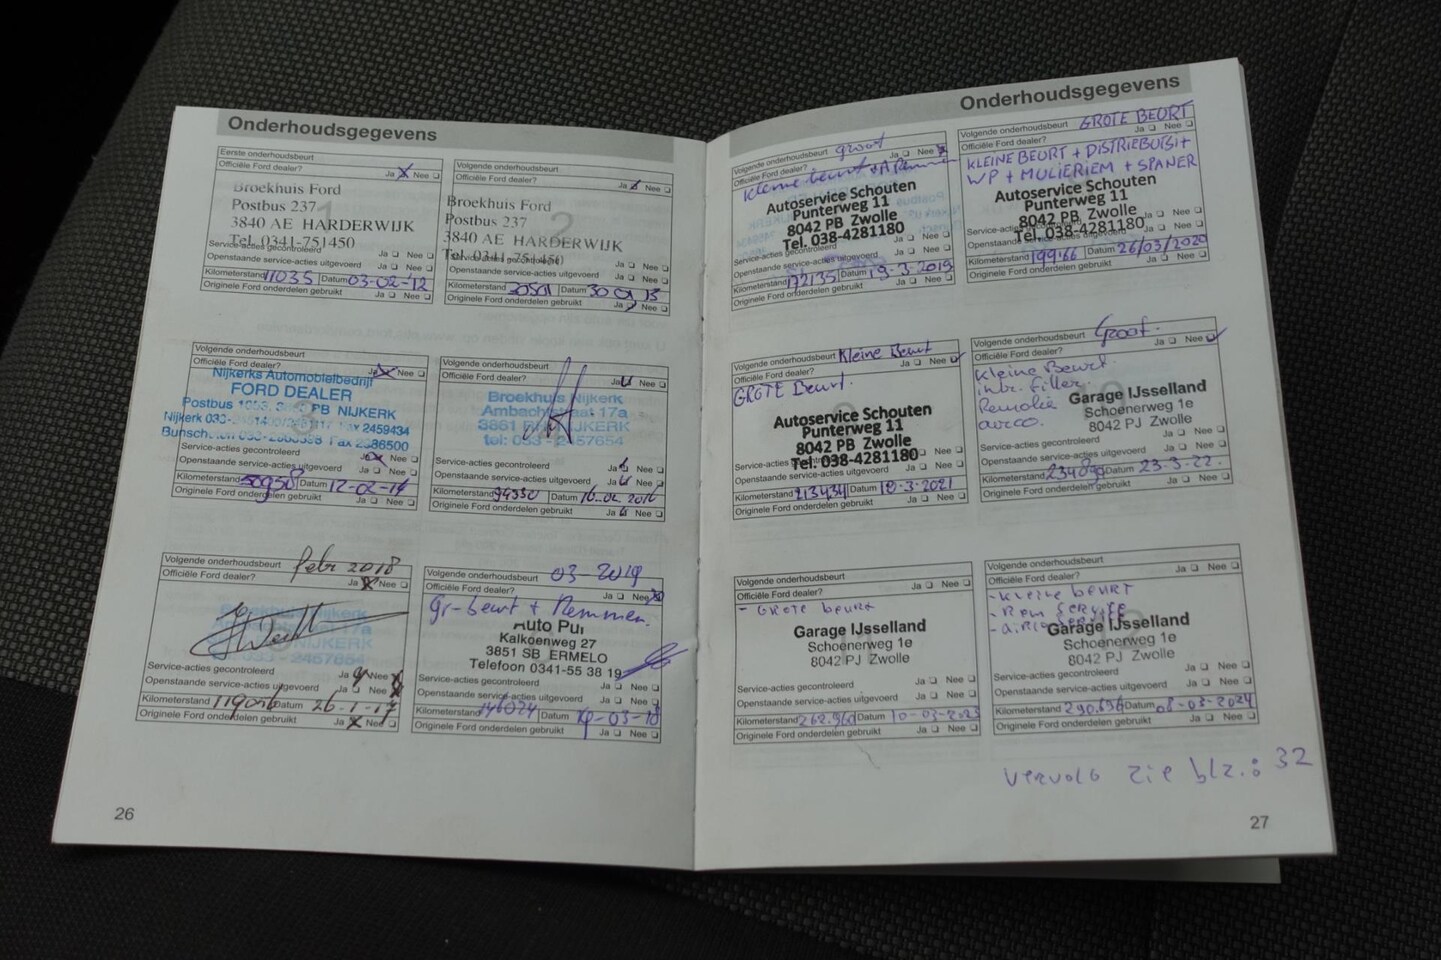 Onderhoudsgegevens
Eerste onderhoudsbeurt
Officiële Ford dealer? Ja Nee
Broekhuis Ford
Postbus 237
3840 AE HARDERWIJK
Tel. 0341-751450
Service-acties gecontroleerd Ja Nee
Openstaande service-acties uitgevoerd Ja Nee
Kilometerstand 11035 Datum 03-02-12
Originele Ford onderdelen gebruikt Ja Nee
2
Officiële Ford dealer? Ja Nee
Broekhuis Ford
Postbus 237
3840 AE HARDERWIJK
Tel. 0341-751450
Openstaande service-acties uitgevoerd Ja Nee
Kilometerstand Datum 30 01 13
Originele Ford onderdelen gebruikt Ja Nee
Volgende onderhoudsbeurt
Officiële Ford dealer? Ja Nee
Nijkerks Automobielbedrijf
FORD DEALER
Postbus PB NIJKERK
Nijkerk 033- Fax 2459434
Fax 2386500
Service-acties gecontroleerd
Openstaande service-acties uitgevoerd Ja Nee
Kilometerstand 50950 Datum 12-02-14
Originele Ford onderdelen gebruikt Ja Nee
Volgende onderhoudsbeurt
Officiële Ford dealer? Ja Nee
Broekhuis Nijkerk
Ambachtstraat 17a
3861 NIJKERK
tel: 033 - 2457654
Service-acties gecontroleerd
Openstaande service-acties uitgevoerd Ja Nee
Kilometerstand 94350 Datum 16.02.2016
Originele Ford onderdelen gebruikt Ja Nee
Volgende onderhoudsbeurt febr 2018
Officiële Ford dealer? Ja Nee
Service-acties gecontroleerd Ja Nee
Openstaande service-acties uitgevoerd Ja Nee
Kilometerstand 119016 Datum 26-1-17
Originele Ford onderdelen gebruikt Ja Nee
Volgende onderhoudsbeurt 03-2019
Officiële Ford dealer? Ja Nee
gr-beurt + Remmen.
Auto Pul
Kalkoenweg 27
3851 SB ERMELO
Telefoon 0341-55 38 19
Service-acties gecontroleerd Ja Nee
Openstaande service-acties uitgevoerd Ja Nee
Kilometerstand 146074 Datum -03-18
Originele Ford onderdelen gebruikt Ja Nee
26
Onderhoudsgegevens
Volgende onderhoudsbeurt groot
Officiële Ford dealer? Ja Nee
Kleine beurt + Remmen
Autoservice Schouten
Punterweg 11
8042 PB Zwolle
Tel. 038-4281180
Service-acties gecontroleerd Ja Nee
Openstaande service-acties uitgevoerd Ja Nee
Kilometerstand 172135 Datum 19-3-2019
Originele Ford onderdelen gebruikt Ja Nee
Volgende onderhoudsbeurt GROTE BEURT
Officiële Ford dealer? Ja Nee
KLEINE BEURT + DISTRIEBUTSI+
WP + MULIERIEM + SPANER
Autoservice Schouten
Punterweg 11
8042 PB Zwolle
Tel. 038-4281180
Openstaande service-acties uitgevoerd Ja Nee
Kilometerstand 199166 Datum 26/03/2020
Originele Ford onderdelen gebruikt Ja Nee
Volgende onderhoudsbeurt Kleine Beurt
Officiële Ford dealer? Ja Nee
GROTE Beurt.
Autoservice Schouten
Punterweg 11
8042 PB Zwolle
Tel. 038-4281180
Openstaande service-acties uitgevoerd Ja Nee
Kilometerstand 213434 Datum 18-3-2021
Originele Ford onderdelen gebruikt Ja Nee
Volgende onderhoudsbeurt Groot.
Officiële Ford dealer? Ja Nee
Kleine Beurt
Garage IJsselland
Schoenerweg 1e
8042 PJ Zwolle
Service-acties gecontroleerd Ja Nee
Openstaande service-acties uitgevoerd Ja Nee
Kilometerstand Datum 23-3-22.
Originele Ford onderdelen gebruikt Ja Nee
Volgende onderhoudsbeurt
Officiële Ford dealer? Ja Nee
- GROTE beurt
Garage IJsselland
Schoenerweg 1e
8042 PJ Zwolle
Service-acties gecontroleerd Ja Nee
Openstaande service-acties uitgevoerd Ja Nee
Kilometerstand 262.960 Datum 10-03-2023
Originele Ford onderdelen gebruikt Ja Nee
Volgende onderhoudsbeurt
Officiële Ford dealer? Ja Nee
- Kleine beurt
- Rem service
Garage IJsselland
Schoenerweg 1e
8042 PJ Zwolle
Service-acties gecontroleerd Ja Nee
Openstaande service-acties uitgevoerd Ja Nee
Kilometerstand 290.656 Datum 08-03-2024
Originele Ford onderdelen gebruikt Ja Nee
vervolg zie blz.: 32
27